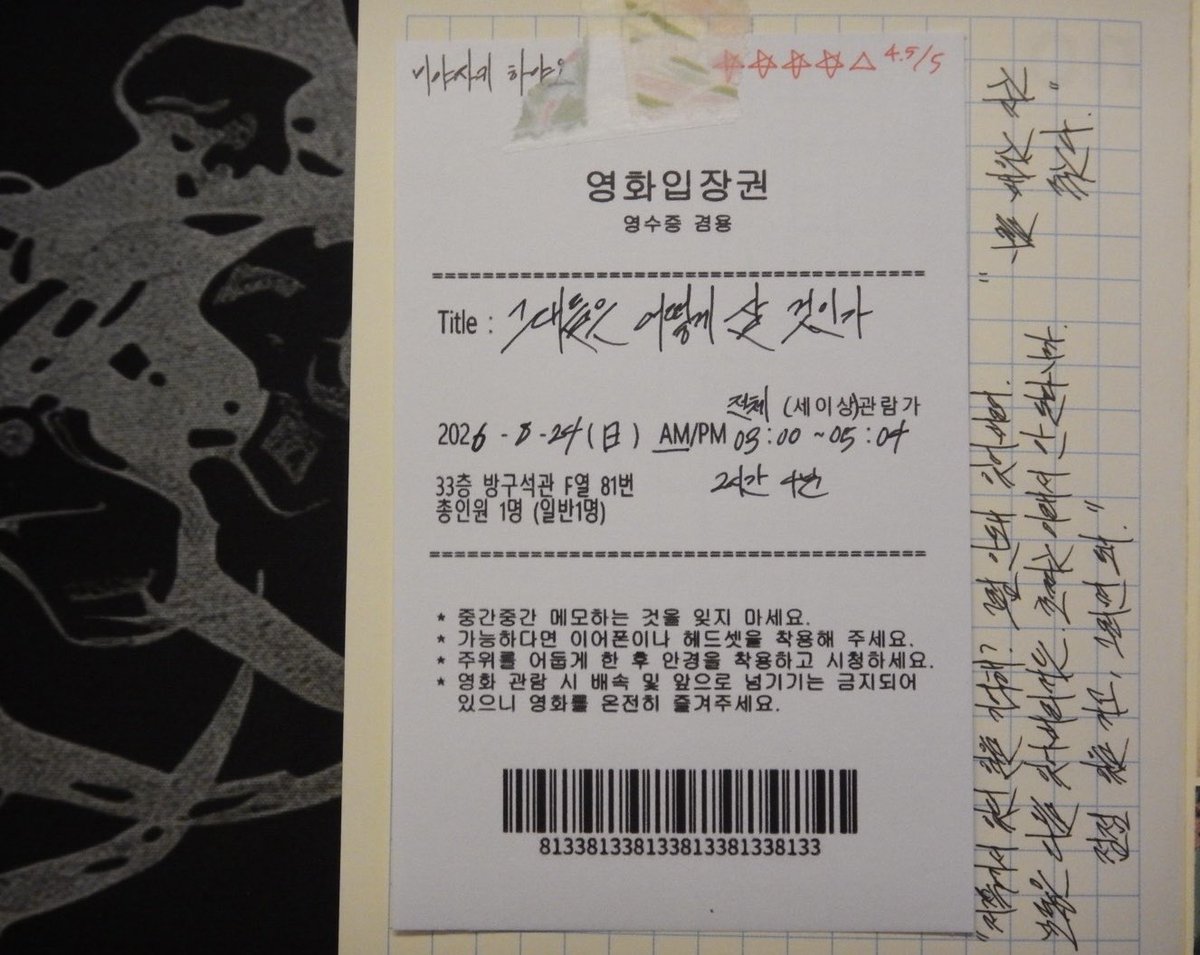 미야자키 하야오
4.5/5
영화입장권
영수증 겸용
Title : 그대들은 어떻게 살 것인가
전체 (세이상)관람가
2026 - 8 - 24 (日) AM/PM 03:00 ~ 05:04
33층 방구석관 F열 81번 2시간 4분
총인원 1명 (일반1명)
* 중간중간 메모하는 것을 잊지 마세요.
* 가능하다면 이어폰이나 헤드셋을 착용해 주세요.
* 주위를 어둡게 한 후 안경을 착용하고 시청하세요.
* 영화 관람 시 배속 및 앞으로 넘기기는 금지되어
있으니 영화를 온전히 즐겨주세요.
8133813381338133813381338133
"저쪽에서 있던 일을 기억해? 그럼 안돼 잊어버려.
보통은 다들 잊어버리거든.
점점 잊을 거고, 그러면 돼."